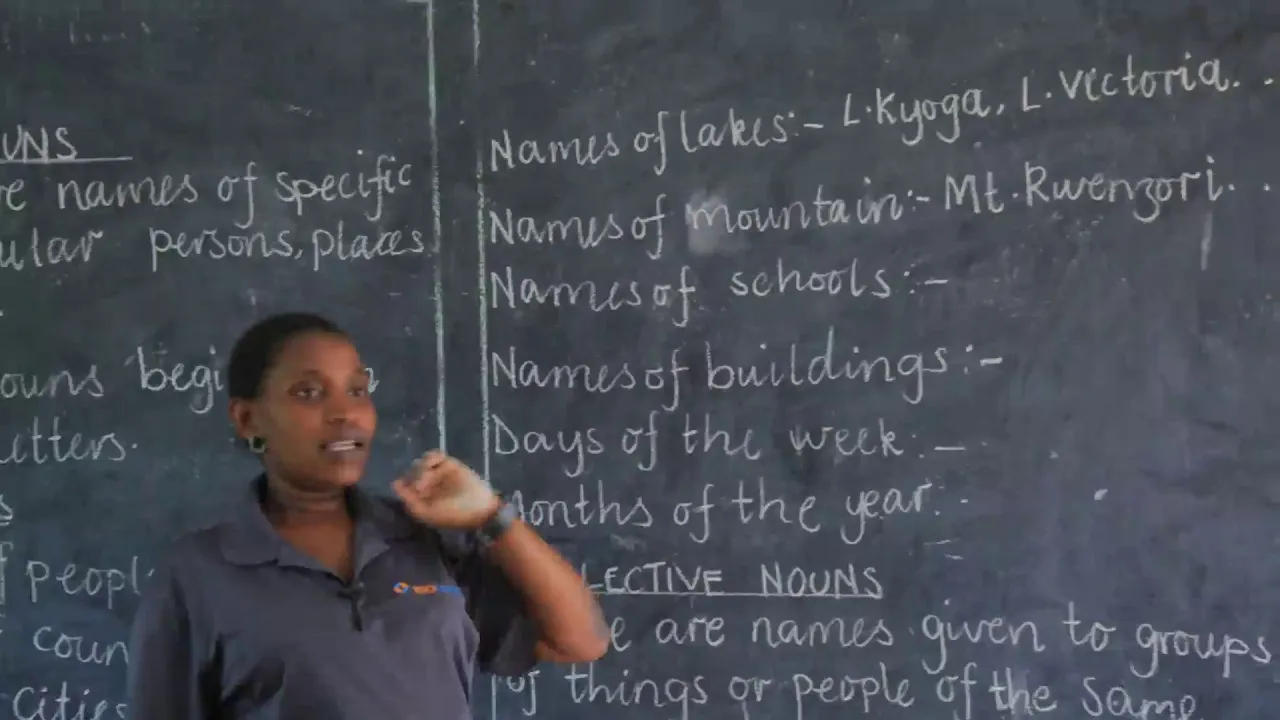 UNS
re names of specific
ular persons, places
ouns begi
etters.
s
f people
coun
Cities
Names of lakes:- L. Kyoga, L. Vectoria. .
Names of mountain:- Mt. Rwenzori. . .
Names of schools:-
Names of buildings:-
Days of the week:-
Months of the year:-
LECTIVE NOUNS
e are names given to groups
of things or people of the same